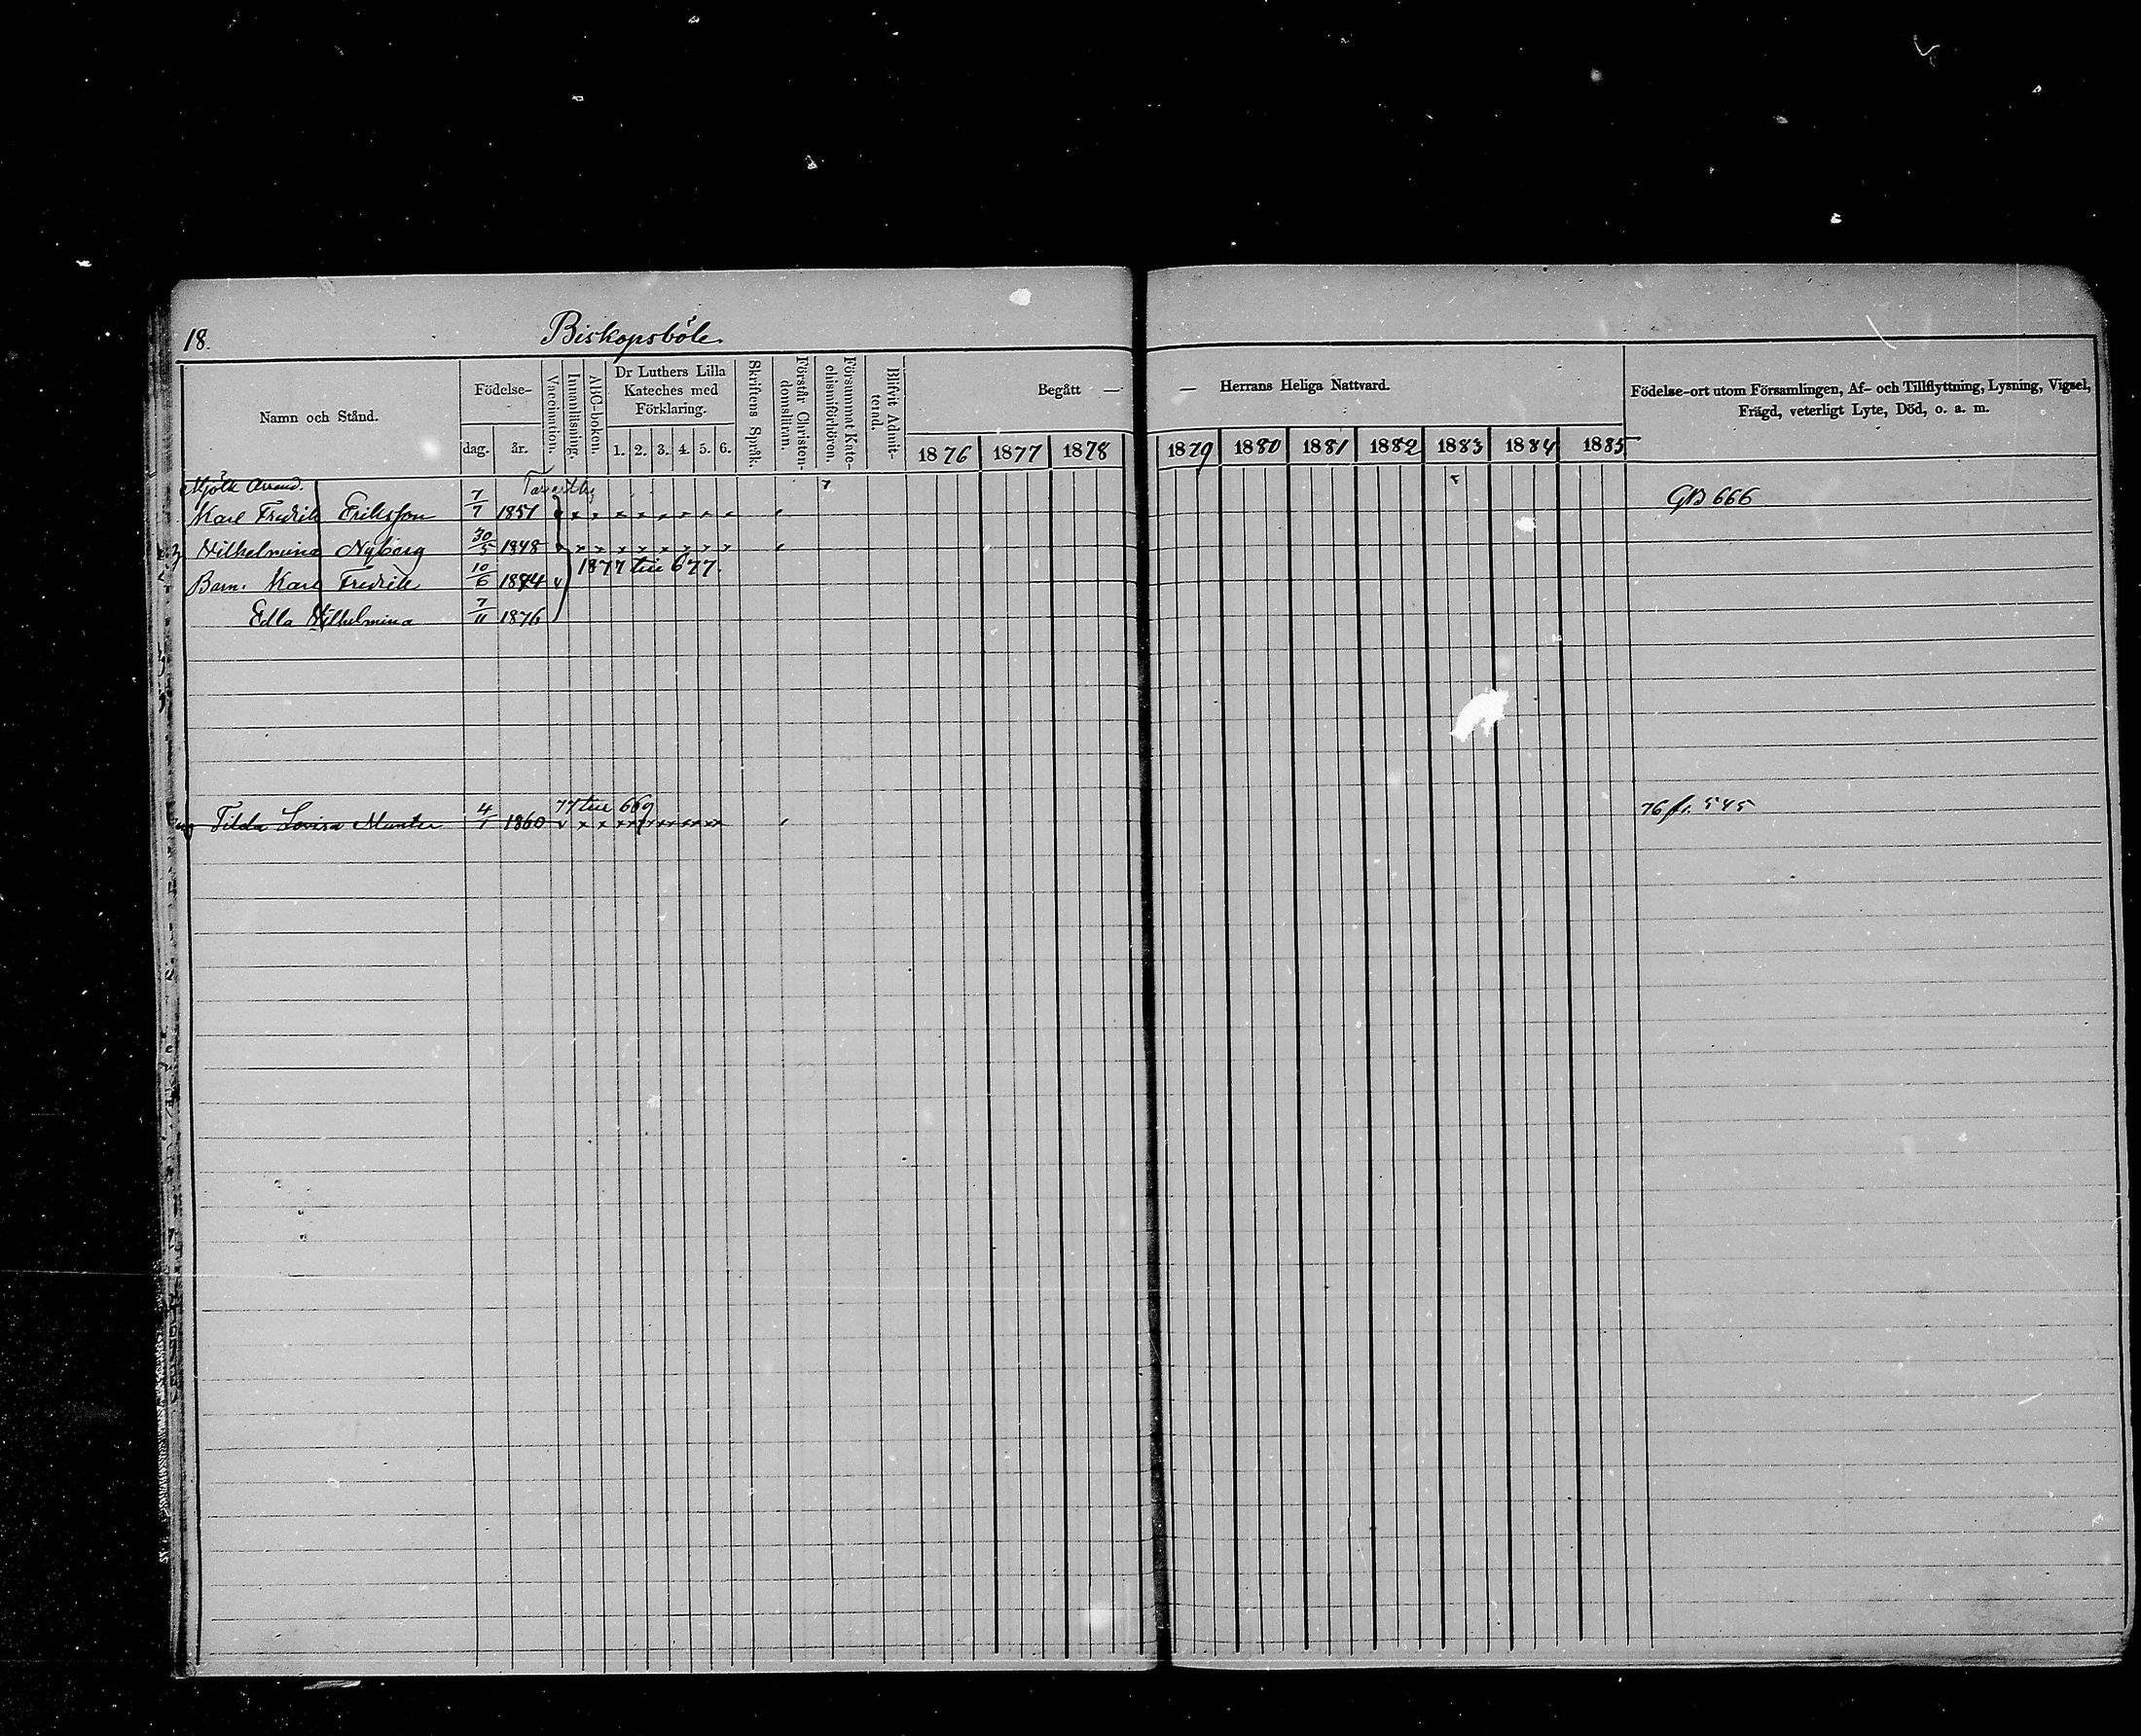 18.
Biskopsböle.
Namn och Stånd.
Födelse-
dag.
år.
Vaccination.
Innanläsning.
ABC-boken.
Dr Luthers Lilla
Kateches med
Förklaring.
1. 2. 3. 4. 5. 6.
Skriftens Språk.
Förstår Christen-
domsläran.
Försummat Kate-
chismiförhören.
Blifvit Admit-
terad.
Begått —
— Herrans Heliga Nattvard.
1876 1877 1878 1879 1880 1881 1882 1883 1884 1885
Födelse-ort utom Församlingen, Af- och Tillflyttning, Lysning, Vigsel,
Frägd, veterligt Lyte, Död, o. a. m.
Mjölk Arrend.
Karl Fredrik Eriksson 7/7 1851 GB 666
Vilhelmina Nyberg 30/5 1848
1877 till 677.
Barn. Karl Fredrik 10/6 1874
Edla Vilhelmina 7/11 1876
77 till 669
Tilda Lovisa Munter 4/1 1860 76 fr. 545